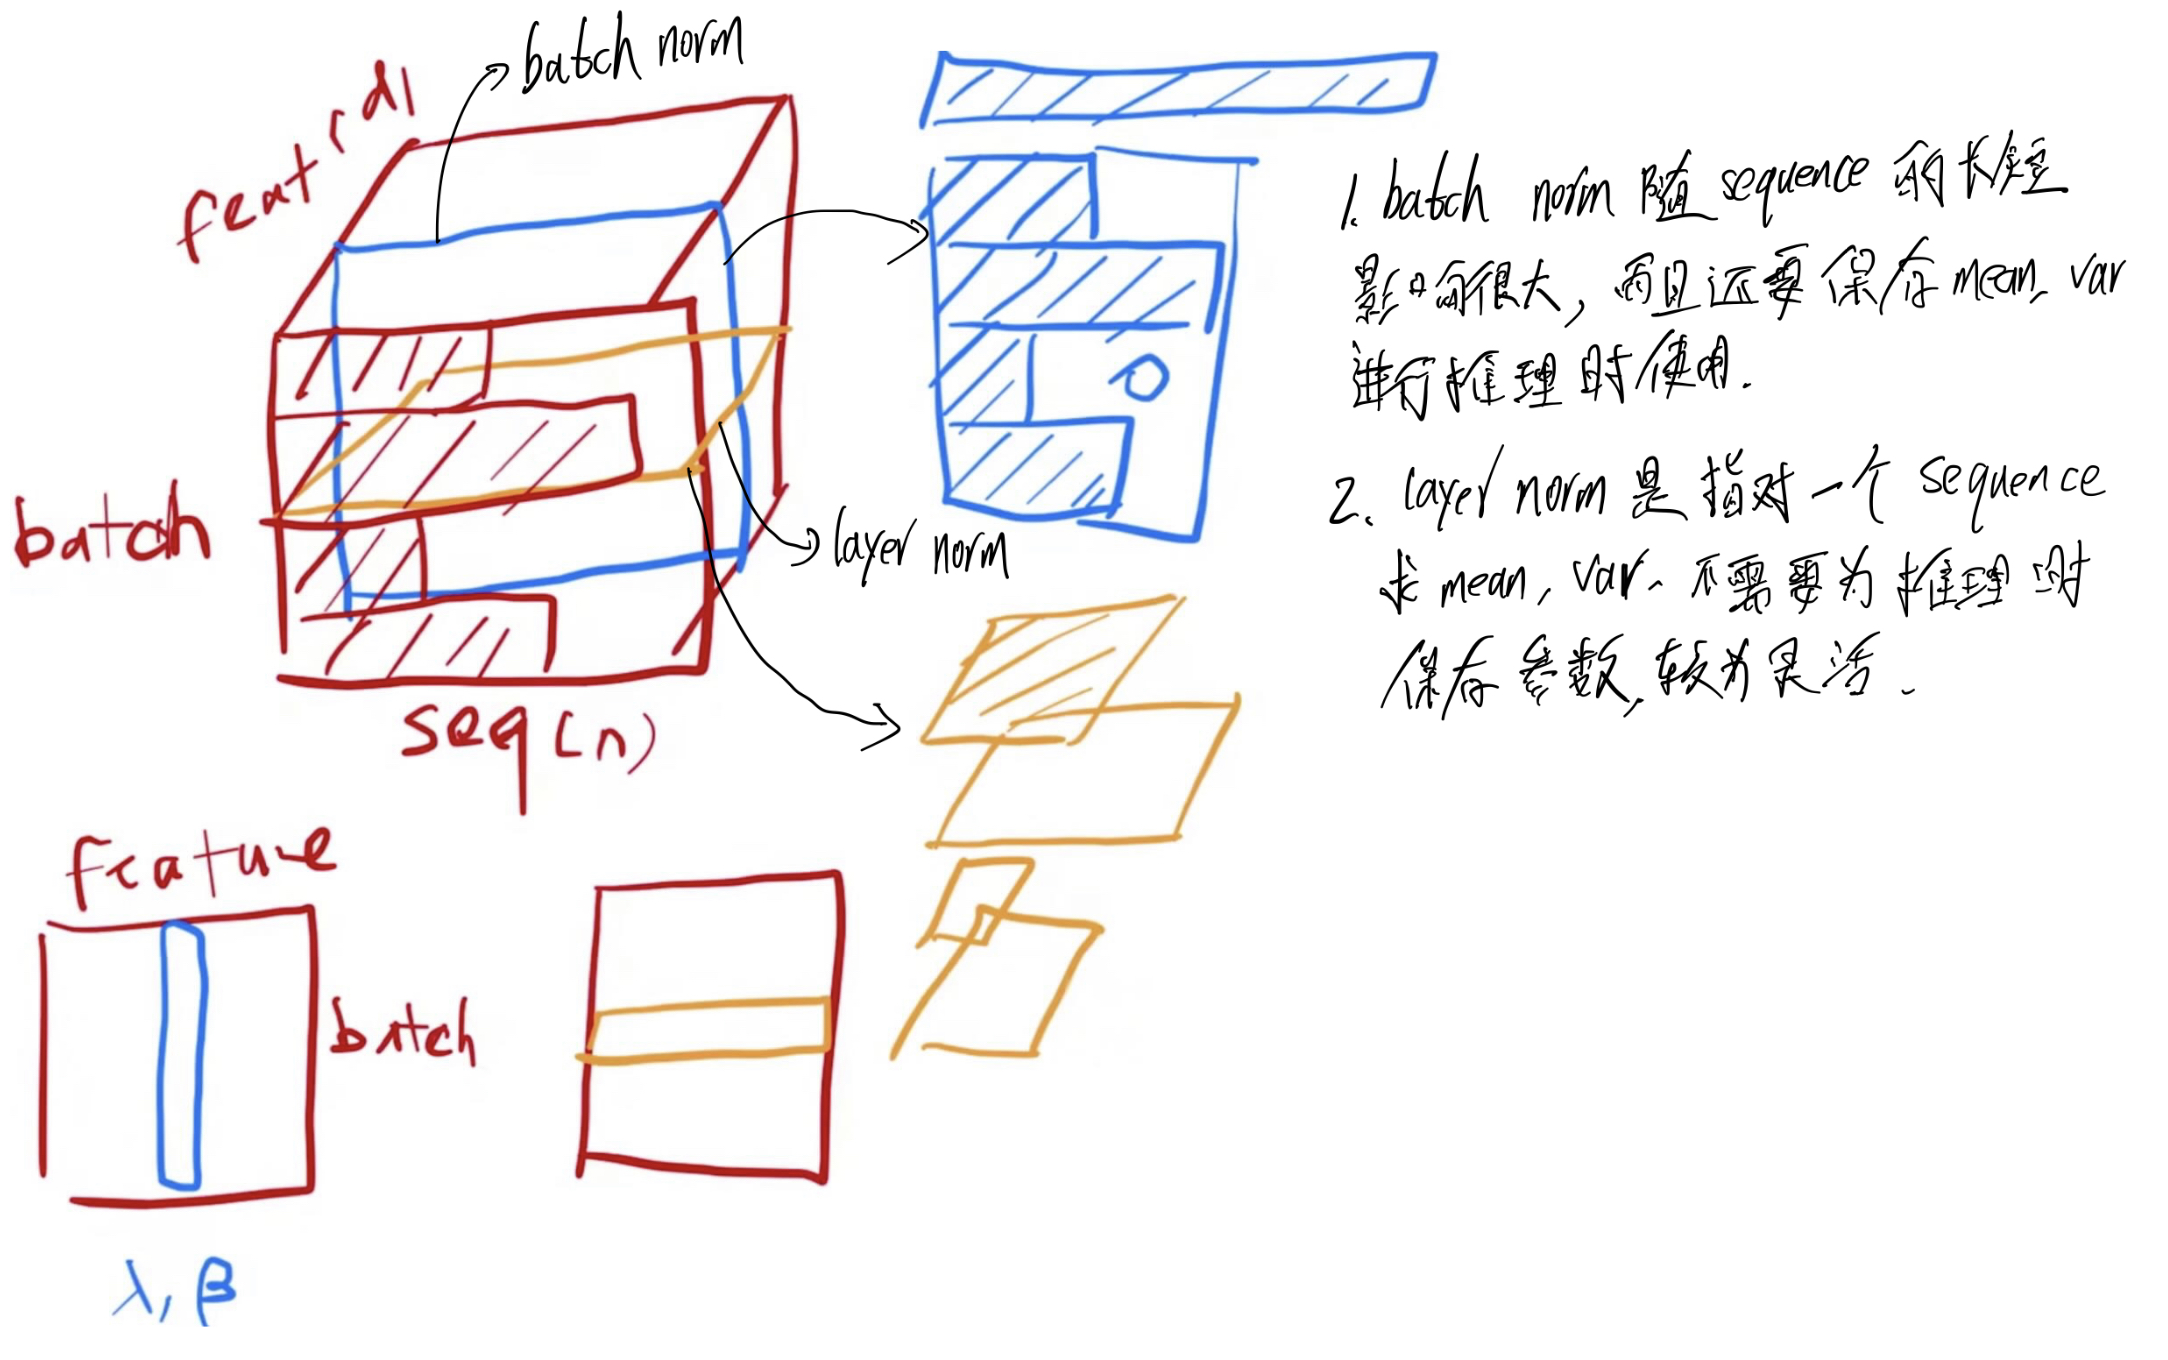 batch norm
feat(d)
batch
layer norm
seq(n)
feature
batch
λ, β
1. batch norm 随 sequence 的长短
影响很大, 而且还要保存 mean, var
进行推理时使用.
2. layer norm 是指对一个 sequence
求 mean, var, 不需要为推理时
保存参数, 较为灵活.
0